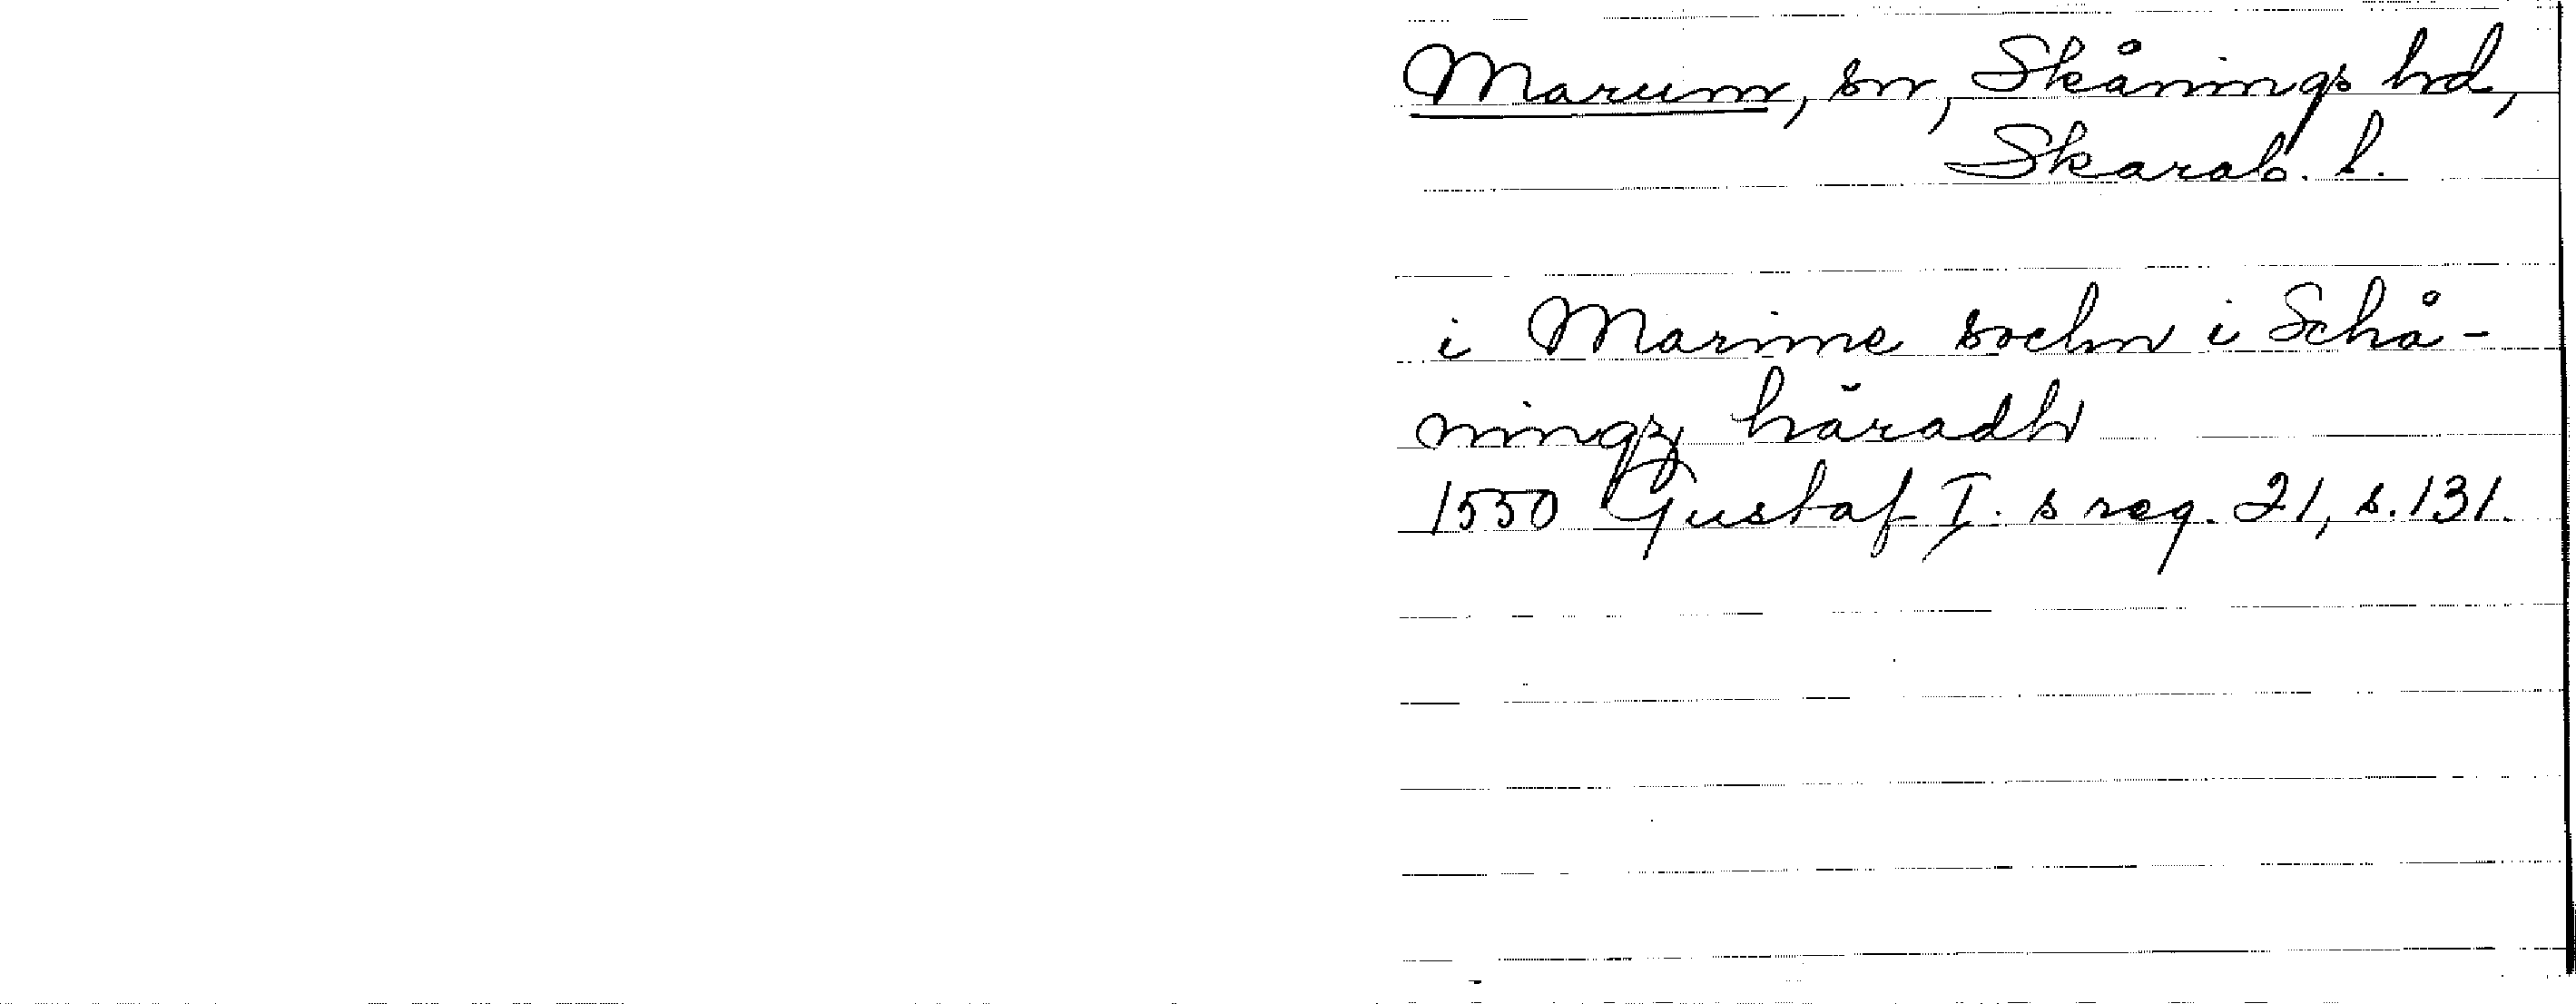 Marum, sn, Skånings hd,
Skarab. l.
i Marime sochn i Schå-
ningz häradh
1550 Gustaf I.s reg. 21, s. 131.